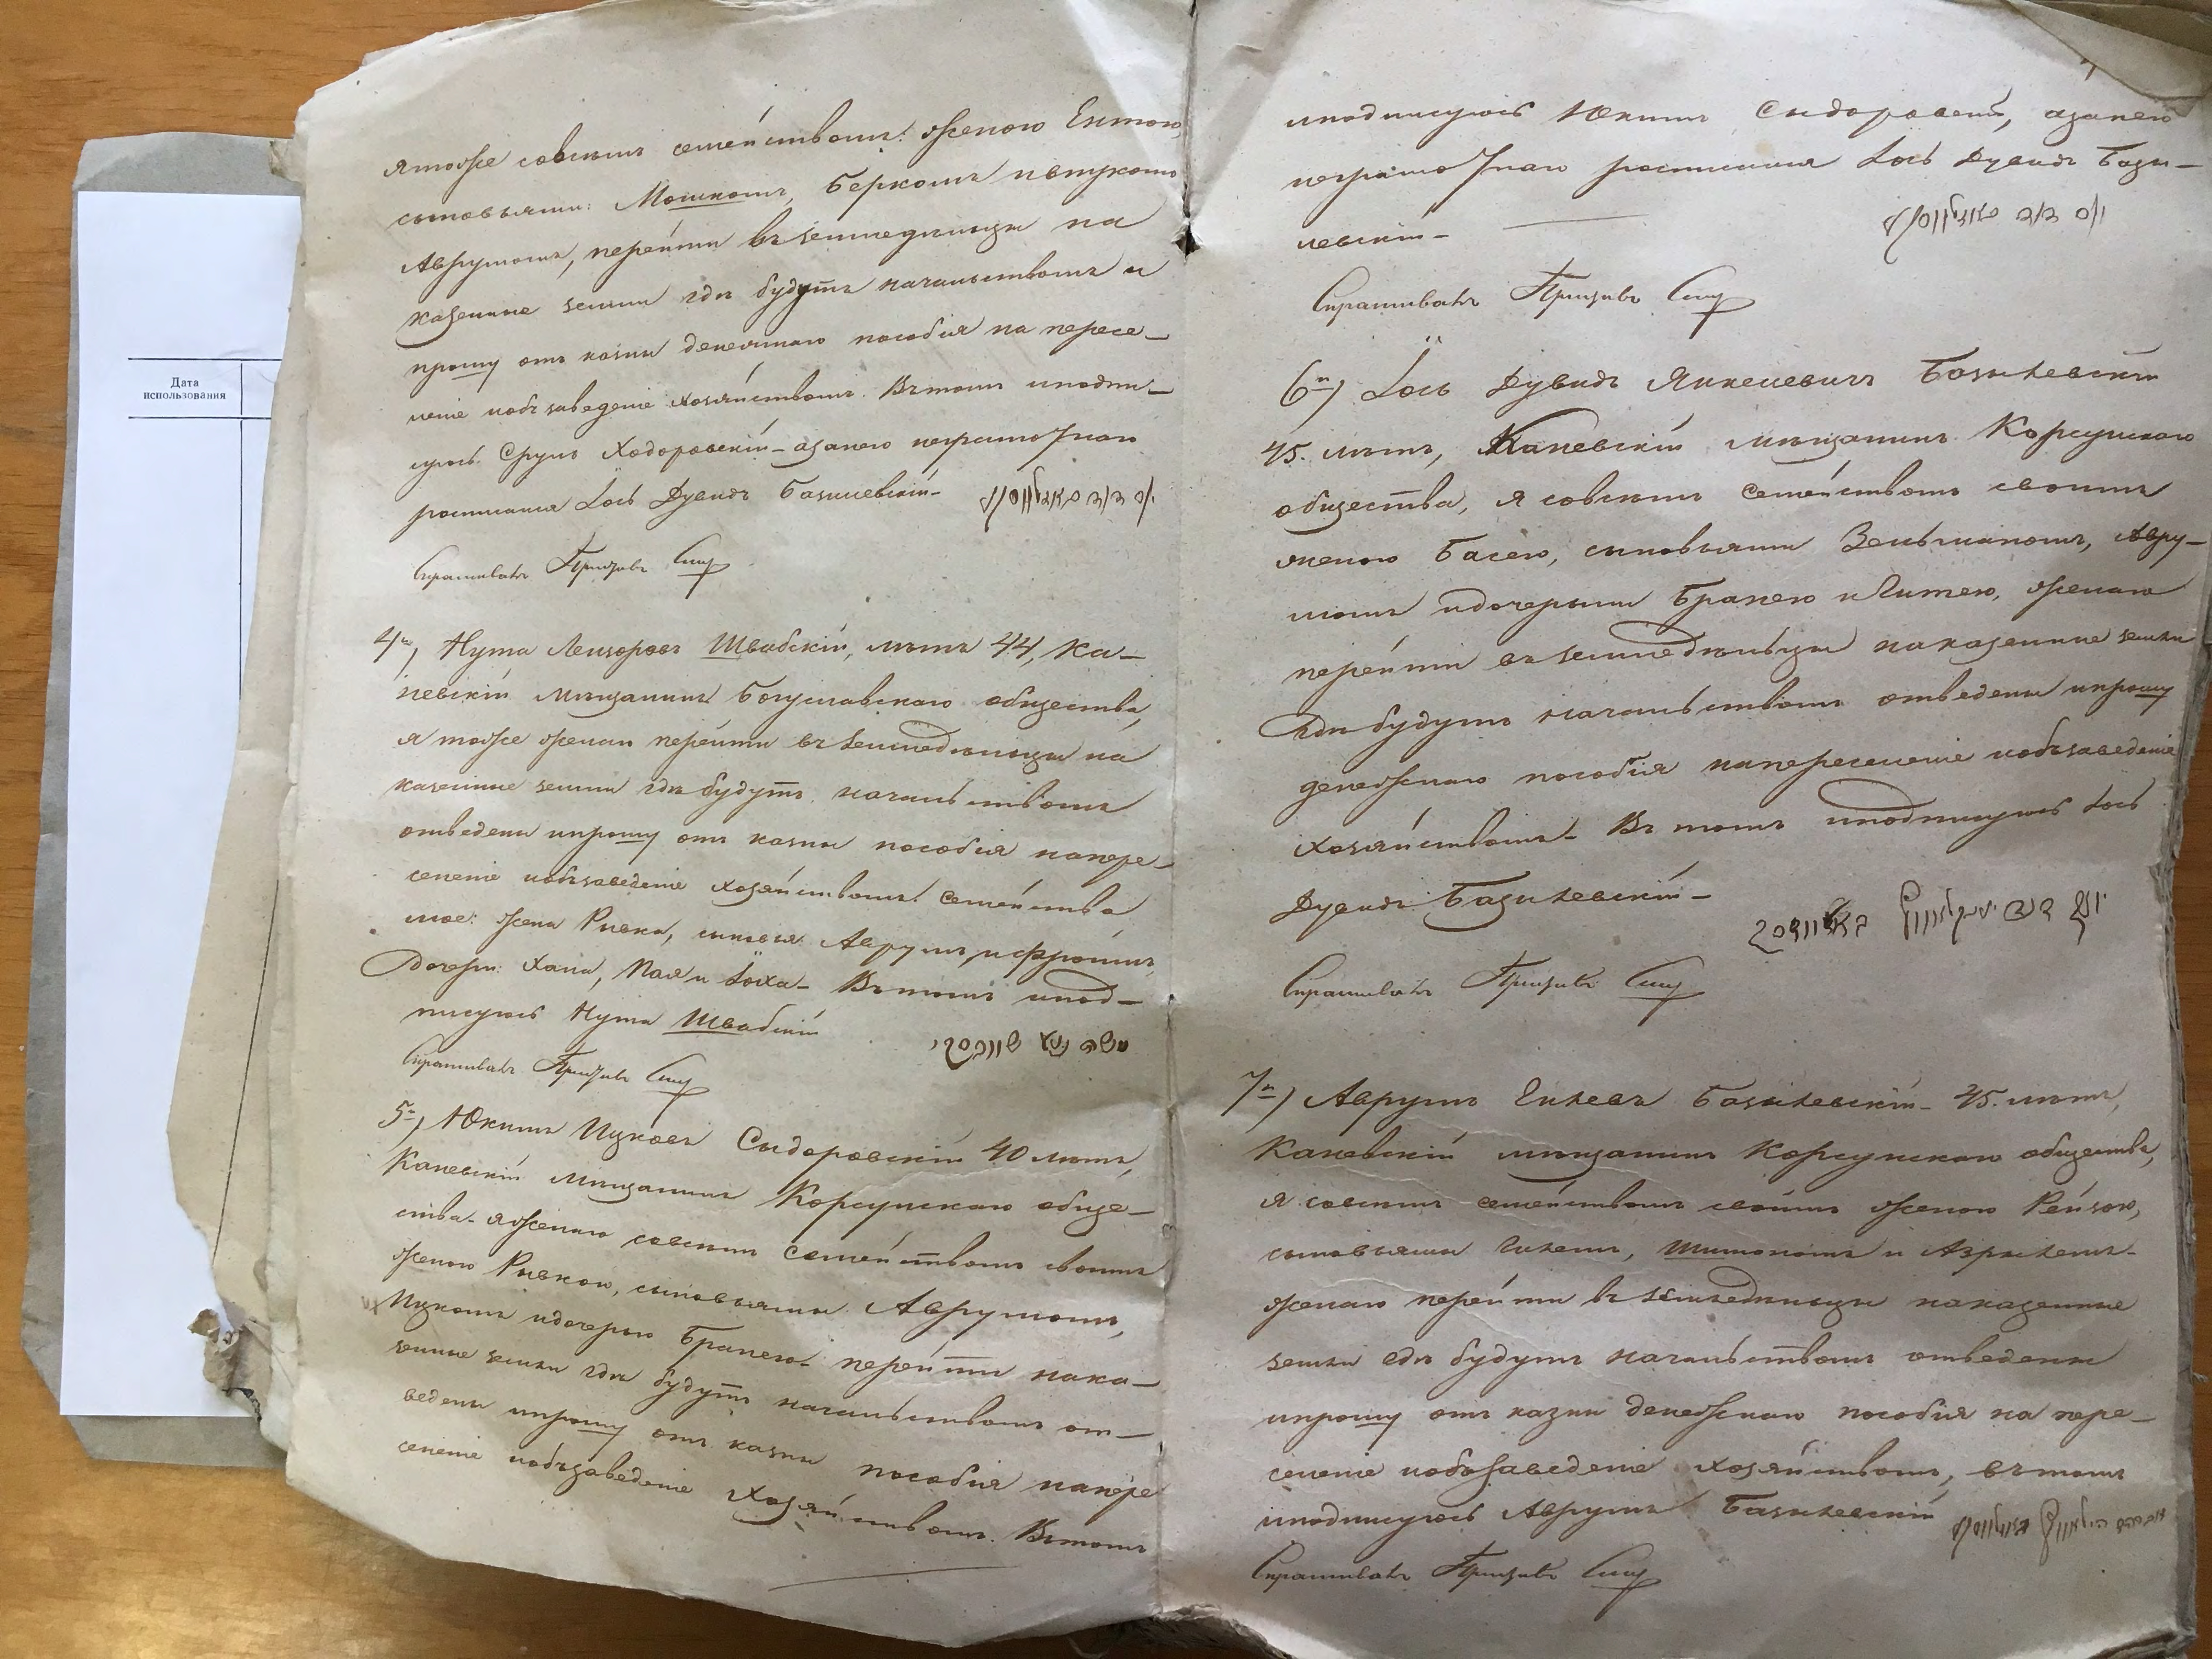 Дата
использования
я тоже совсемъ семействомъ: женою Ентою,
сыновьями: Мошкомъ, Беркомъ и внукомъ
Аврумомъ, перейти въ земледельцы на
казенные земли где будутъ начальствомъ и
прошу отъ казны денежнаго пособія на пересе-
ленie и объзаведеніе хозяйствомъ. Въ томъ и подпи-
суюсь. Сруль Ходоровскій - а за него неграмотнаго
росписался Іось Дувидъ Базилевскій-
Спрашивалъ Приставъ
4й) Нута Лейзоровъ Швабскій, летъ 44, Ка-
невскій мещанинъ Богуславскаго общества,
я тоже желаю перейти въ земледельцы на
казенные земли где будутъ начальствомъ
отведены и прошу отъ казны пособія на пере-
селеніе и объзаведеніе хозяйствомъ. Семейства
мое: жена Рывка, сыновья Аврумъ и Фроимъ,
дочери: Хана, Пая и Іоха- Въ томъ и под-
писуюсь Нута Швабскій
Спрашивалъ Приставъ
5й) Юкимъ Ицковъ Сыдоровскій 40 летъ,
Каневскій мещанинъ Корсунскаго обще-
ства- я желаю совсемъ семействомъ своимъ
женою Рывкою, сыновьями Аврумомъ,
Ицкомъ и дочерью Бранею- перейти на ка-
зенные земли где будутъ начальствомъ от-
ведены и прошу отъ казны пособія на пере
селеніе и объзаведеніе хозяйствомъ. Въ томъ
и подписуюсь Юкимъ Сыдоровскій, а за него
неграмотнаго росписался Іось Дувидъ Бази-
левскій-
Спрашивалъ Приставъ
6й) Іось Дувидъ Янкелевичъ Базилевскій
45. летъ, Каневскій мещанинъ Корсунскаго
общества, я совсемъ семействомъ своимъ
женою Басею, сыновьями Зельманомъ, Авру-
момъ и дочерьми Бранею и Гитею, желаю
перейти въ земледельцы на казенные земли
где будутъ начальствомъ отведены и прошу
денежнаго пособія на переселеніе и объзаведеніе
хозяйствомъ- Въ томъ и подписуюсь Іось
Дувидъ Базилевскій-
Спрашивалъ Приставъ
7й) Аврумъ Гилевъ Базилевскій- 45. летъ,
Каневскій мещанинъ Корсунскаго общества,
я совсемъ семействомъ своимъ женою Рейзою,
сыновьями Гилемъ, Шимономъ и Азрилемъ-
желаю перейти въ земледельцы на казенные
земли где будутъ начальствомъ отведены
и прошу отъ казны денежнаго пособія на пере-
селеніе и объзаведеніе хозяйствомъ, въ томъ
и подписуюсь Аврумъ Базилевскій
Спрашивалъ Приставъ